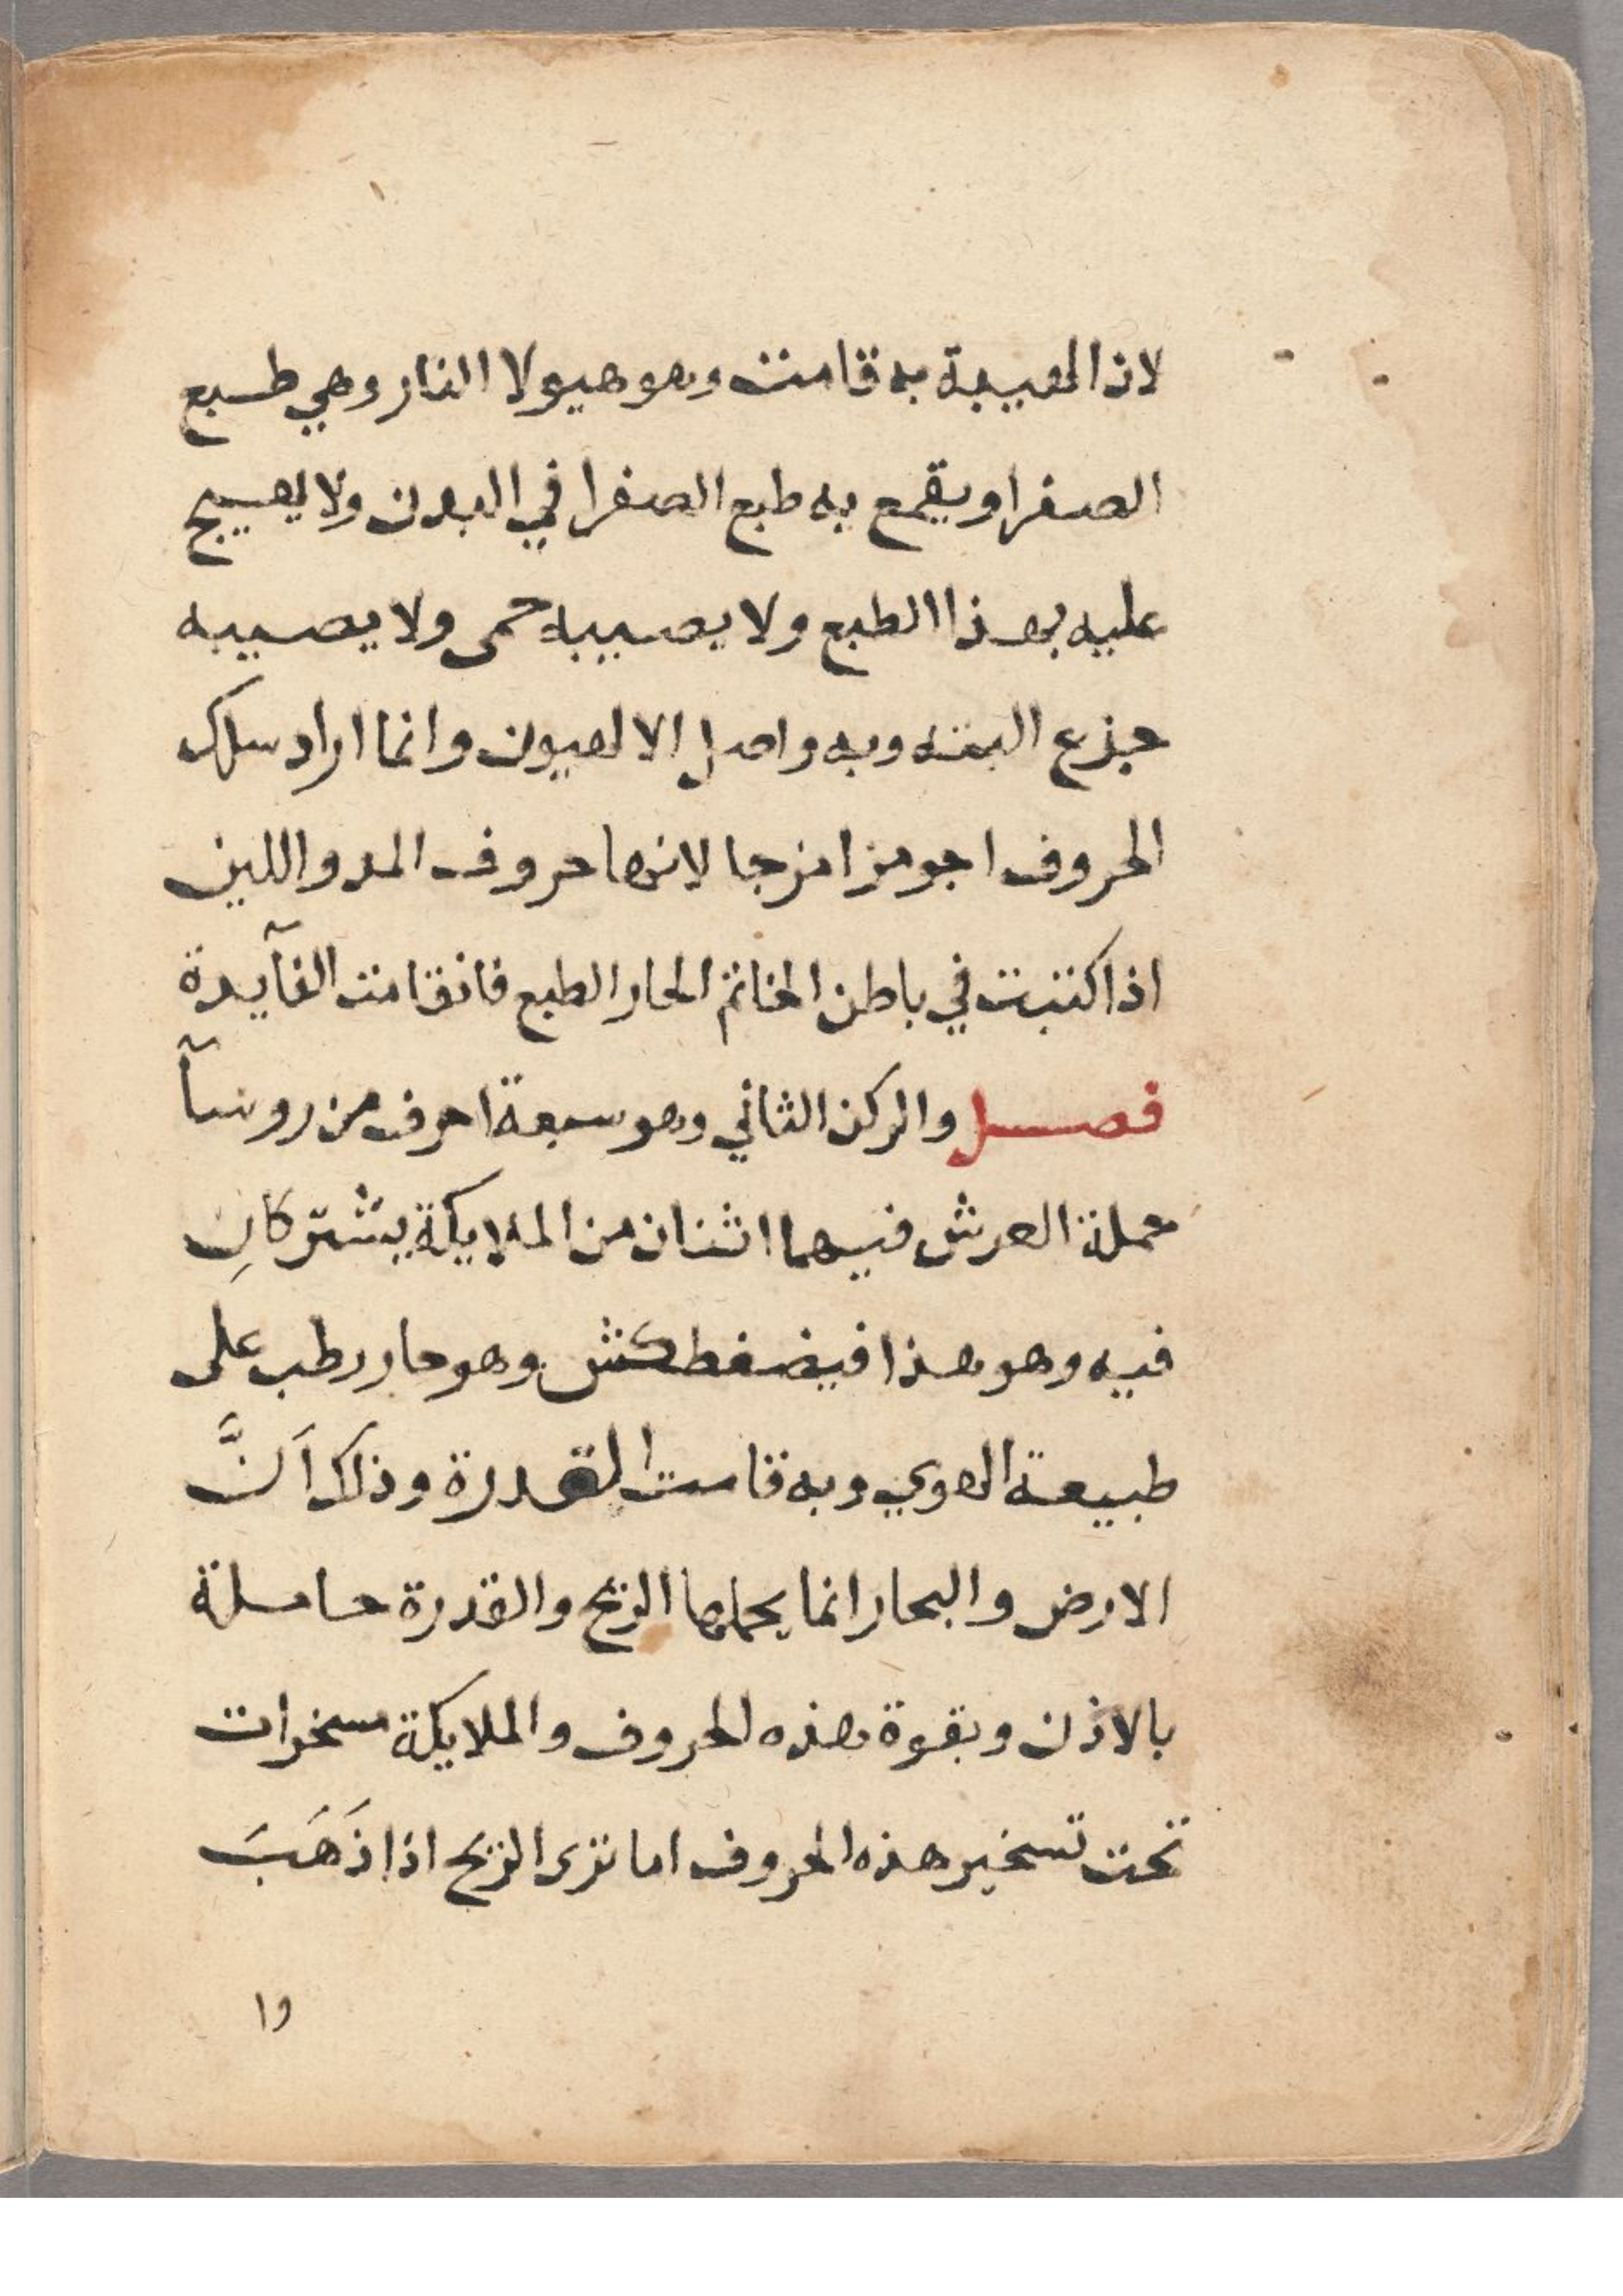 لان الهيبة به قامت وهو هيولا النار وهي طبع
الصفرا ويقمع به طبع الصفرا في البدن ولا يهيج
عليه بهذا الطبع ولا يصيبه حمى ولا يصيبه
جزع البته وبه واصل الالهيون وانما اراد سلك
الحروف اجو مزامزجا لانها حروف المد واللين
اذا كتبت في باطن الخاتم الحار الطبع فانقامت الفآيدة
فصل والركن الثاني وهو سبعة احرف من روسآ
حملة العرش فيهما اثنان من الملايكة يشتركانِ
فيه وهو هذا فيضغطكش وهو حار رطب على
طبيعة الهوي وبه قامت القدرة وذلك اَنَّ
الارض والبحار انما يحملها الريح والقدرة حاملة
بالاذن وبقوة هذه الحروف والملايكة مسخرات
تحت تسخير هذه الحروف اما ترى الريح اذا ذَهَبَ
وا